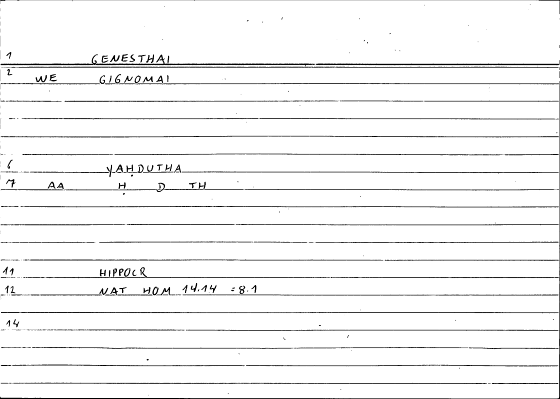 1 GENESTHAI
2 WE GIGNOMAI
6 YAḤDUTHA
7 AA Ḥ D TH
11 HIPPOCR
12 NAT HOM 14.14 =8.1
14